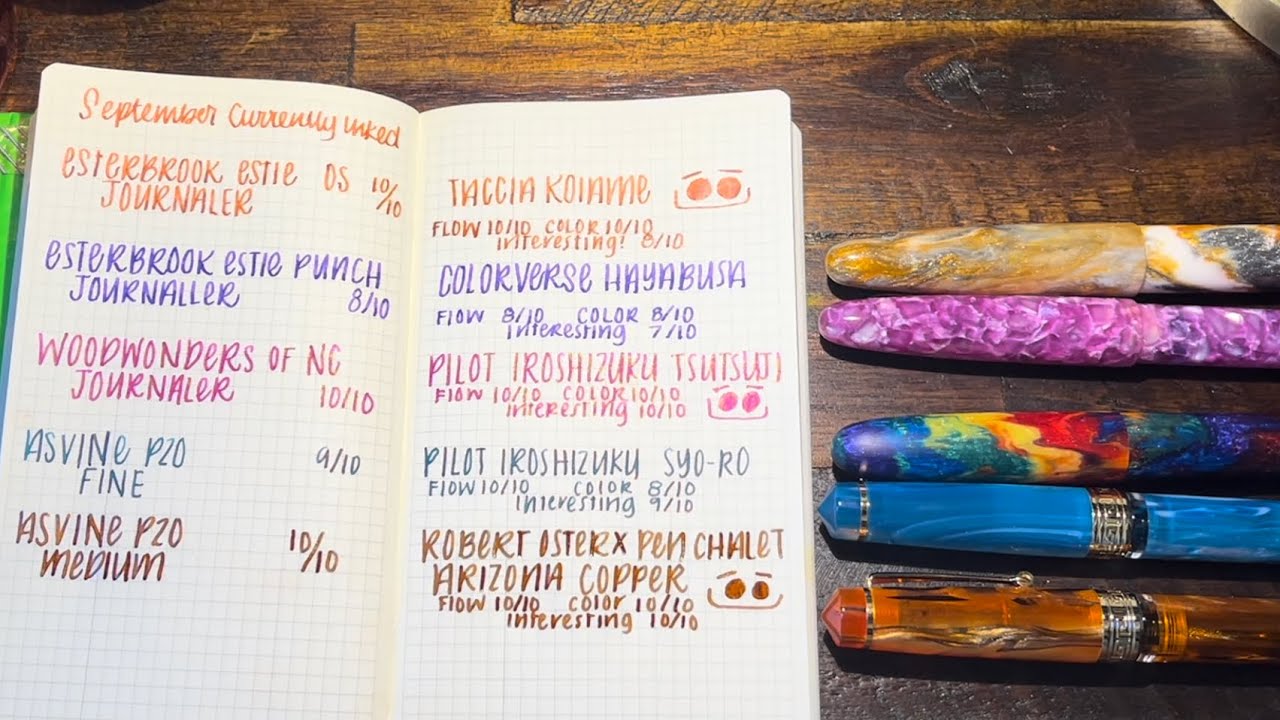 September Currently inked
ESTERBROOK ESTIE OS 10/10
JOURNALER
ESTERBROOK ESTIE PUNCH
JOURNALLER 8/10
WOODWONDERS OF NC
JOURNALER 10/10
ASVINE P20 9/10
FINE
ASVINE P20 10/10
MEDIUM
TACCIA KOIAME
FLOW 10/10 COLOR 10/10
INTERESTING! 8/10
COLORVERSE HAYABUSA
FLOW 8/10 COLOR 8/10
INTERESTING 7/10
PILOT IROSHIZUKU TSUTSUJI
FLOW 10/10 COLOR 10/10
INTERESTING 10/10
PILOT IROSHIZUKU SYO-RO
FLOW 10/10 COLOR 8/10
INTERESTING 9/10
ROBERT OSTER X PEN CHALET
ARIZONA COPPER
FLOW 10/10 COLOR 10/10
INTERESTING 10/10